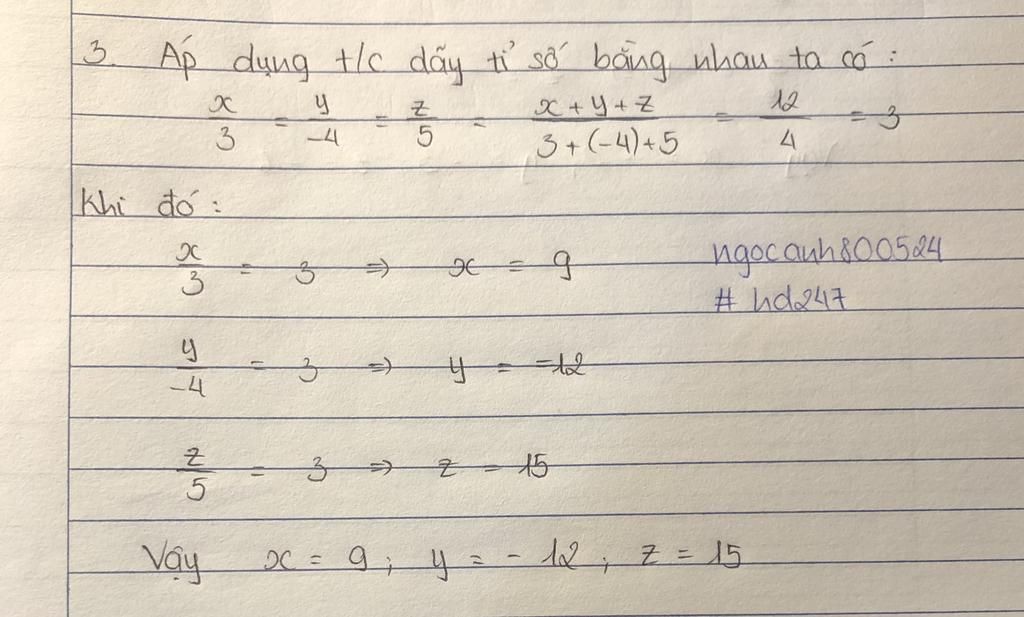 3. Áp dụng t/c dãy tỉ số bằng nhau ta có:
x/3 = y/-4 = z/5 = x+y+z/3+(-4)+5 = 12/4 = 3
Khi đó:
x/3 = 3 => x = 9
ngocanh800524
# hd247
y/-4 = 3 => y = -12
z/5 = 3 => z = 15
Vậy x = 9; y = -12; z = 15